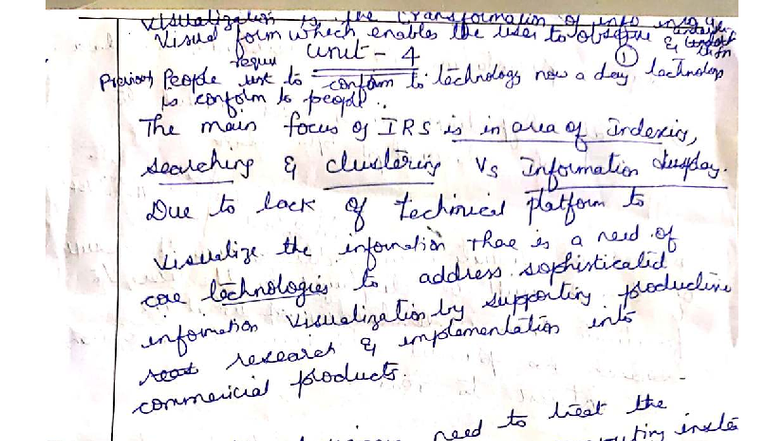 visualization is the transformation of info into a
Visual form which enables the user to observe &
Unit - 4
1
requi
Previously People use to conform to technology now a day technology
is conform to people.
The main focus of IRS is in area of Indexing,
searching & clustering Vs Information display.
Due to lack of technical platform to
visualize the information thae is a need of
core technologies to address sophisticated
information visualization by supporting productive
research & implementation into
commericial products.
need to treat the